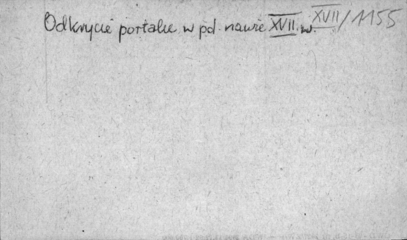 Odkrycie portalu w pd. nawie XVII. w.
XVII/1155